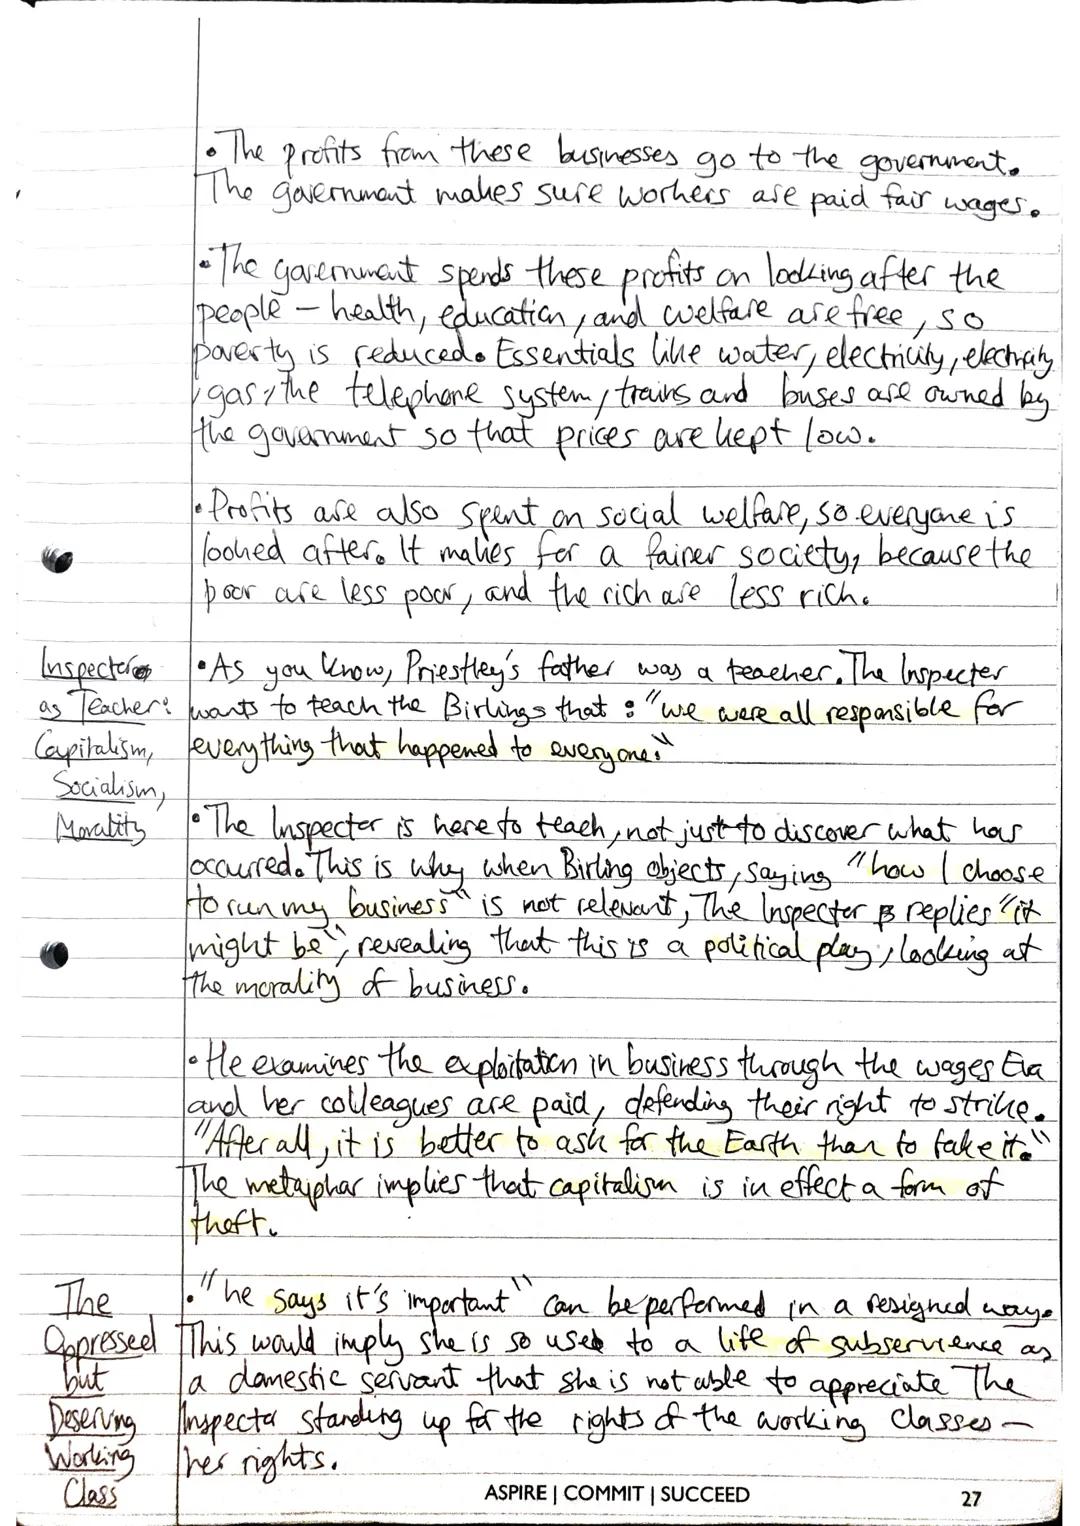 • The profits from these businesses go to the government.
The government makes sure workers are paid fair wages.
• The government spends these profits on looking after the
people – health, education, and welfare are free, so
poverty is reduced. Essentials like water, electricity, electricity
, gas, the telephone system, trains and buses are owned by
the government so that prices are kept low.
• Profits are also spent on social welfare, so everyone is
looked after. It makes for a fairer society, because the
poor are less poor, and the rich are less rich.
Inspector
as Teacher:
Capitalism,
Socialism,
Morality
• As you know, Priestley's father was a teacher. The Inspecter
wants to teach the Birlings that : "we were all responsible for
everything that happened to everyone."
• The Inspecter is here to teach, not just to discover what has
occurred. This is why when Birling objects, saying "how I choose
to run my business" is not relevant, The Inspecter replies "it
might be", revealing that this is a political play, looking at
the morality of business.
• He examines the exploitation in business through the wages Eva
and her colleagues are paid, defending their right to strike.
"After all, it is better to ask for the Earth than to take it."
The metaphar implies that capitalism is in effect a form of
theft.
The
Oppressed
but
Deserving
Working
Class
• "he says it's important" can be performed in a resigned way.
This would imply she is so used to a life of subservience as
a domestic servant that she is not able to appreciate The
Inspector standing up for the rights of the working classes –
her rights.
ASPIRE | COMMIT | SUCCEED
27